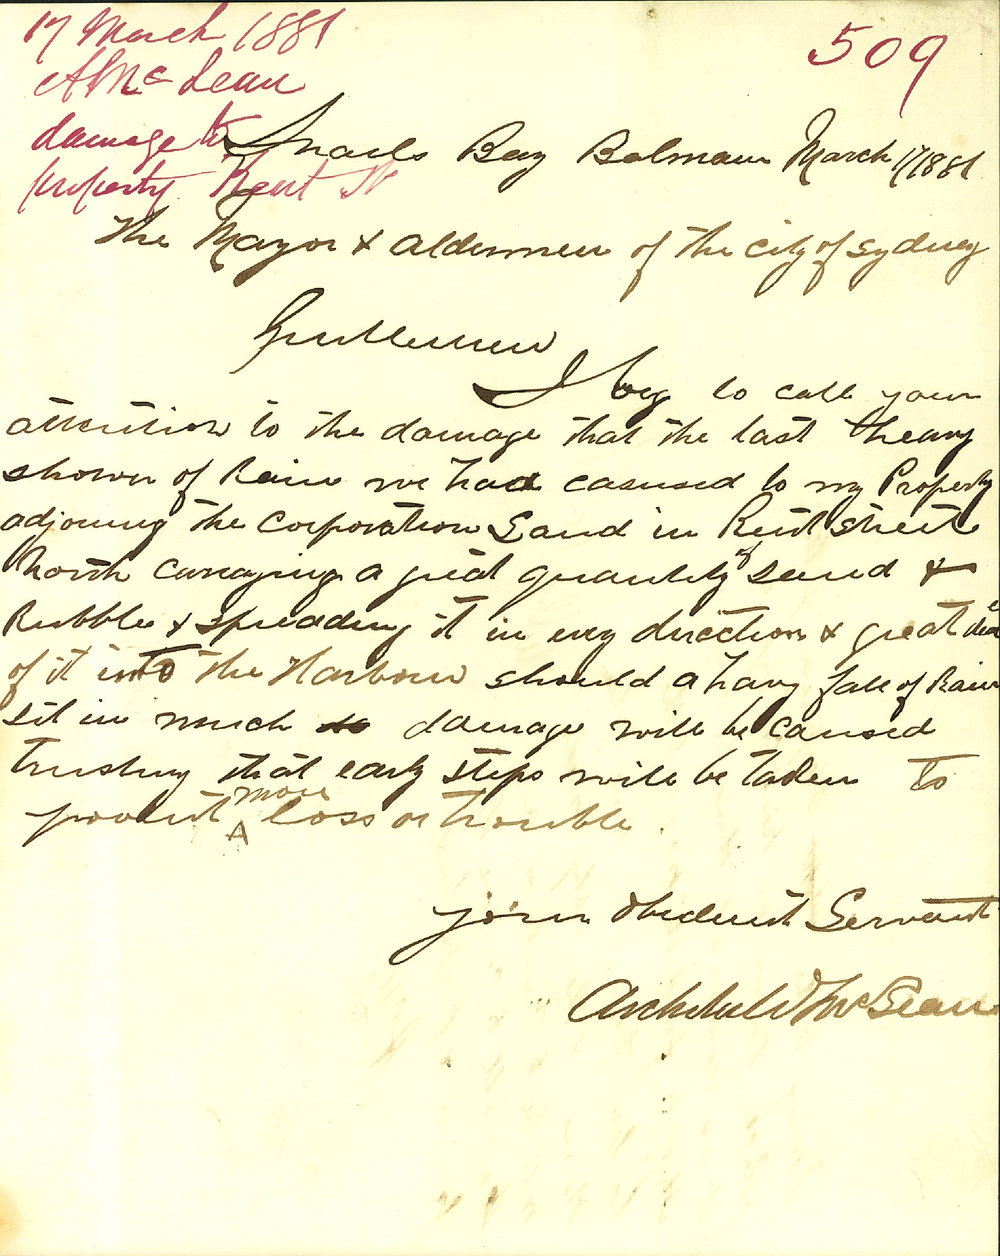 17 March 1881
A Mc Lean
damage to
property Kent St
509
Snails Bay Balmain March 17/1881
The Mayor & aldermen of the city of Sydney
Gentlemen
I beg to call your
attention to the damage that the last heavy
shower of Rain we had caused to my Property
adjoining the corporation Land in Kent street
North carraying a great quantity of sand &
Rubble & spreading it in every direction & great deal
of it into the Harbour should a havy fall of Rain
sit in much damage will be caused
trusting that early steps will be taken to
prevent more loss or trouble.
your obedient Servant
Archibald McLean